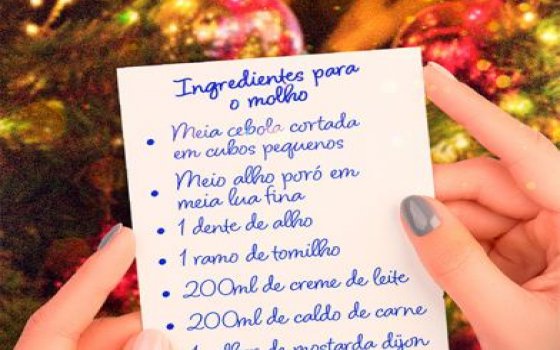 Ingredientes para
o molho
• Meia cebola cortada
em cubos pequenos
• Meio alho poró em
meia lua fina
• 1 dente de alho
• 1 ramo de tomilho
• 200ml de creme de leite
• 200ml de caldo de carne
de mostarda dijon